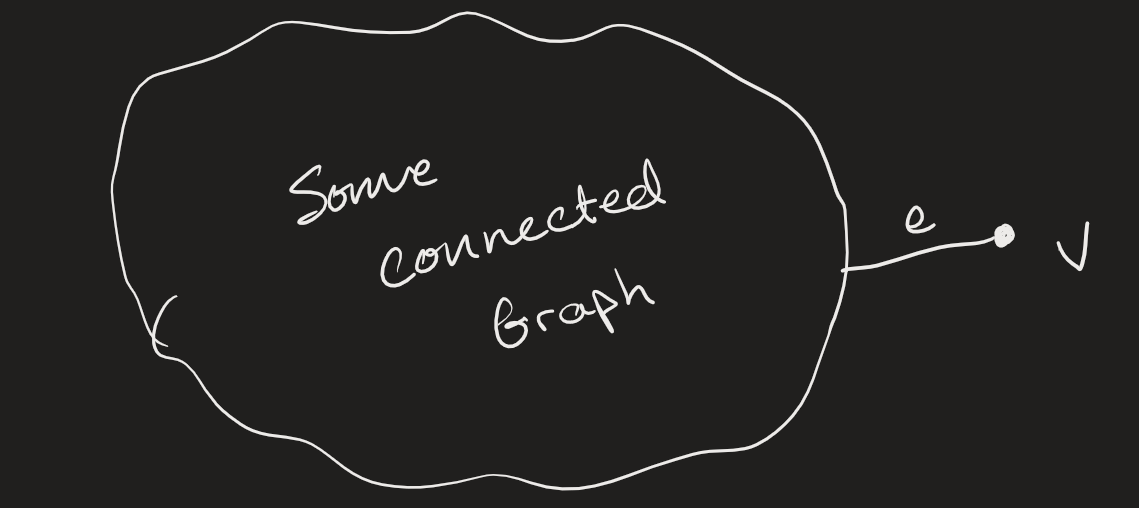 Some
connected
Graph
e
V